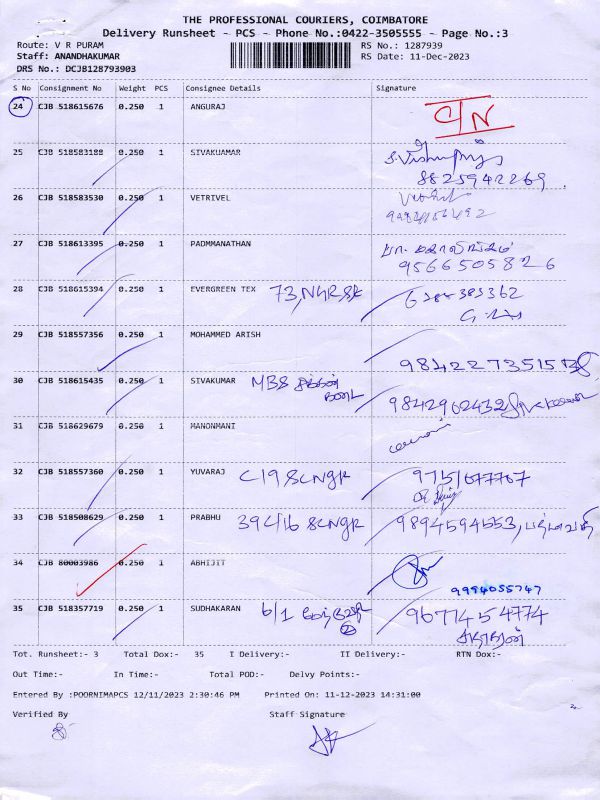 THE PROFESSIONAL COURIERS, COIMBATORE
Delivery Runsheet ~ PCS - Phone No.:0422-3505555 - Page No.:3
Route: V R PURAM
RS No.: 1287939
Staff: ANANDHAKUMAR
RS Date: 11-Dec-2023
DRS No.: DCJB128793903
S No Consignment No Weight PCS Consignee Details Signature
24 CJB 518615676 0.250 1 ANGURAJ C/N
25 CJB 518583188 0.250 1 SIVAKUAMAR
8825942269
26 CJB 518583530 0.250 1 VETRIVEL
27 CJB 518613395 0.250 1 PADMMANATHAN
9566505826
28 CJB 518615394 0.250 1 EVERGREEN TEX 73, NGR SK 6384383362
29 CJB 518557356 0.250 1 MOHAMMED ARISH
9842273515
30 CJB 518615435 0.250 1 SIVAKUMAR MBS
9842902432
31 CJB 518629679 0.250 1 MANONMANI
32 CJB 518557360 0.250 1 YUVARAJ C19 SCNGR 9751677767
33 CJB 518508629 0.250 1 PRABHU 39C/16 SCNGR 9894594553,
34 CJB 80003986 0.250 1 ABHIJIT
9994055747
35 CJB 518357719 0.250 1 SUDHAKARAN 6/1 9677454774
Tot. Runsheet:- 3 Total Dox:- 35 I Delivery:- II Delivery:- RTN Dox:-
Out Time:- In Time:- Total POD:- Delvy Points:-
Entered By :POORNIMAPCS 12/11/2023 2:30:46 PM Printed On: 11-12-2023 14:31:00
Verified By Staff Signature